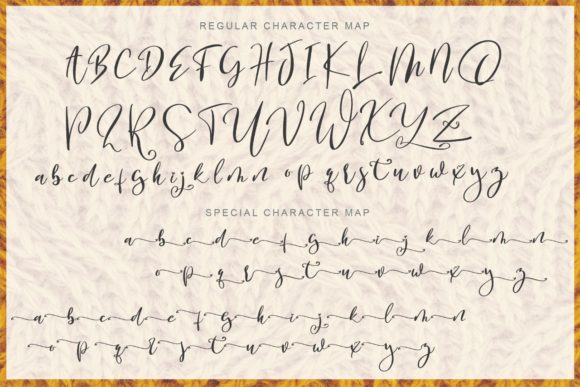 REGULAR CHARACTER MAP
A B C D E F G H I J K L M N O
P Q R S T U V W X Y Z
a b c d e f g h i j k l m n o p q r s t u v w x y z
SPECIAL CHARACTER MAP
a b c d e f g h i j k l m n
o p q r s t u v w x y z
a b c d e f g h i j k l m n
o p q r s t u v w x y z